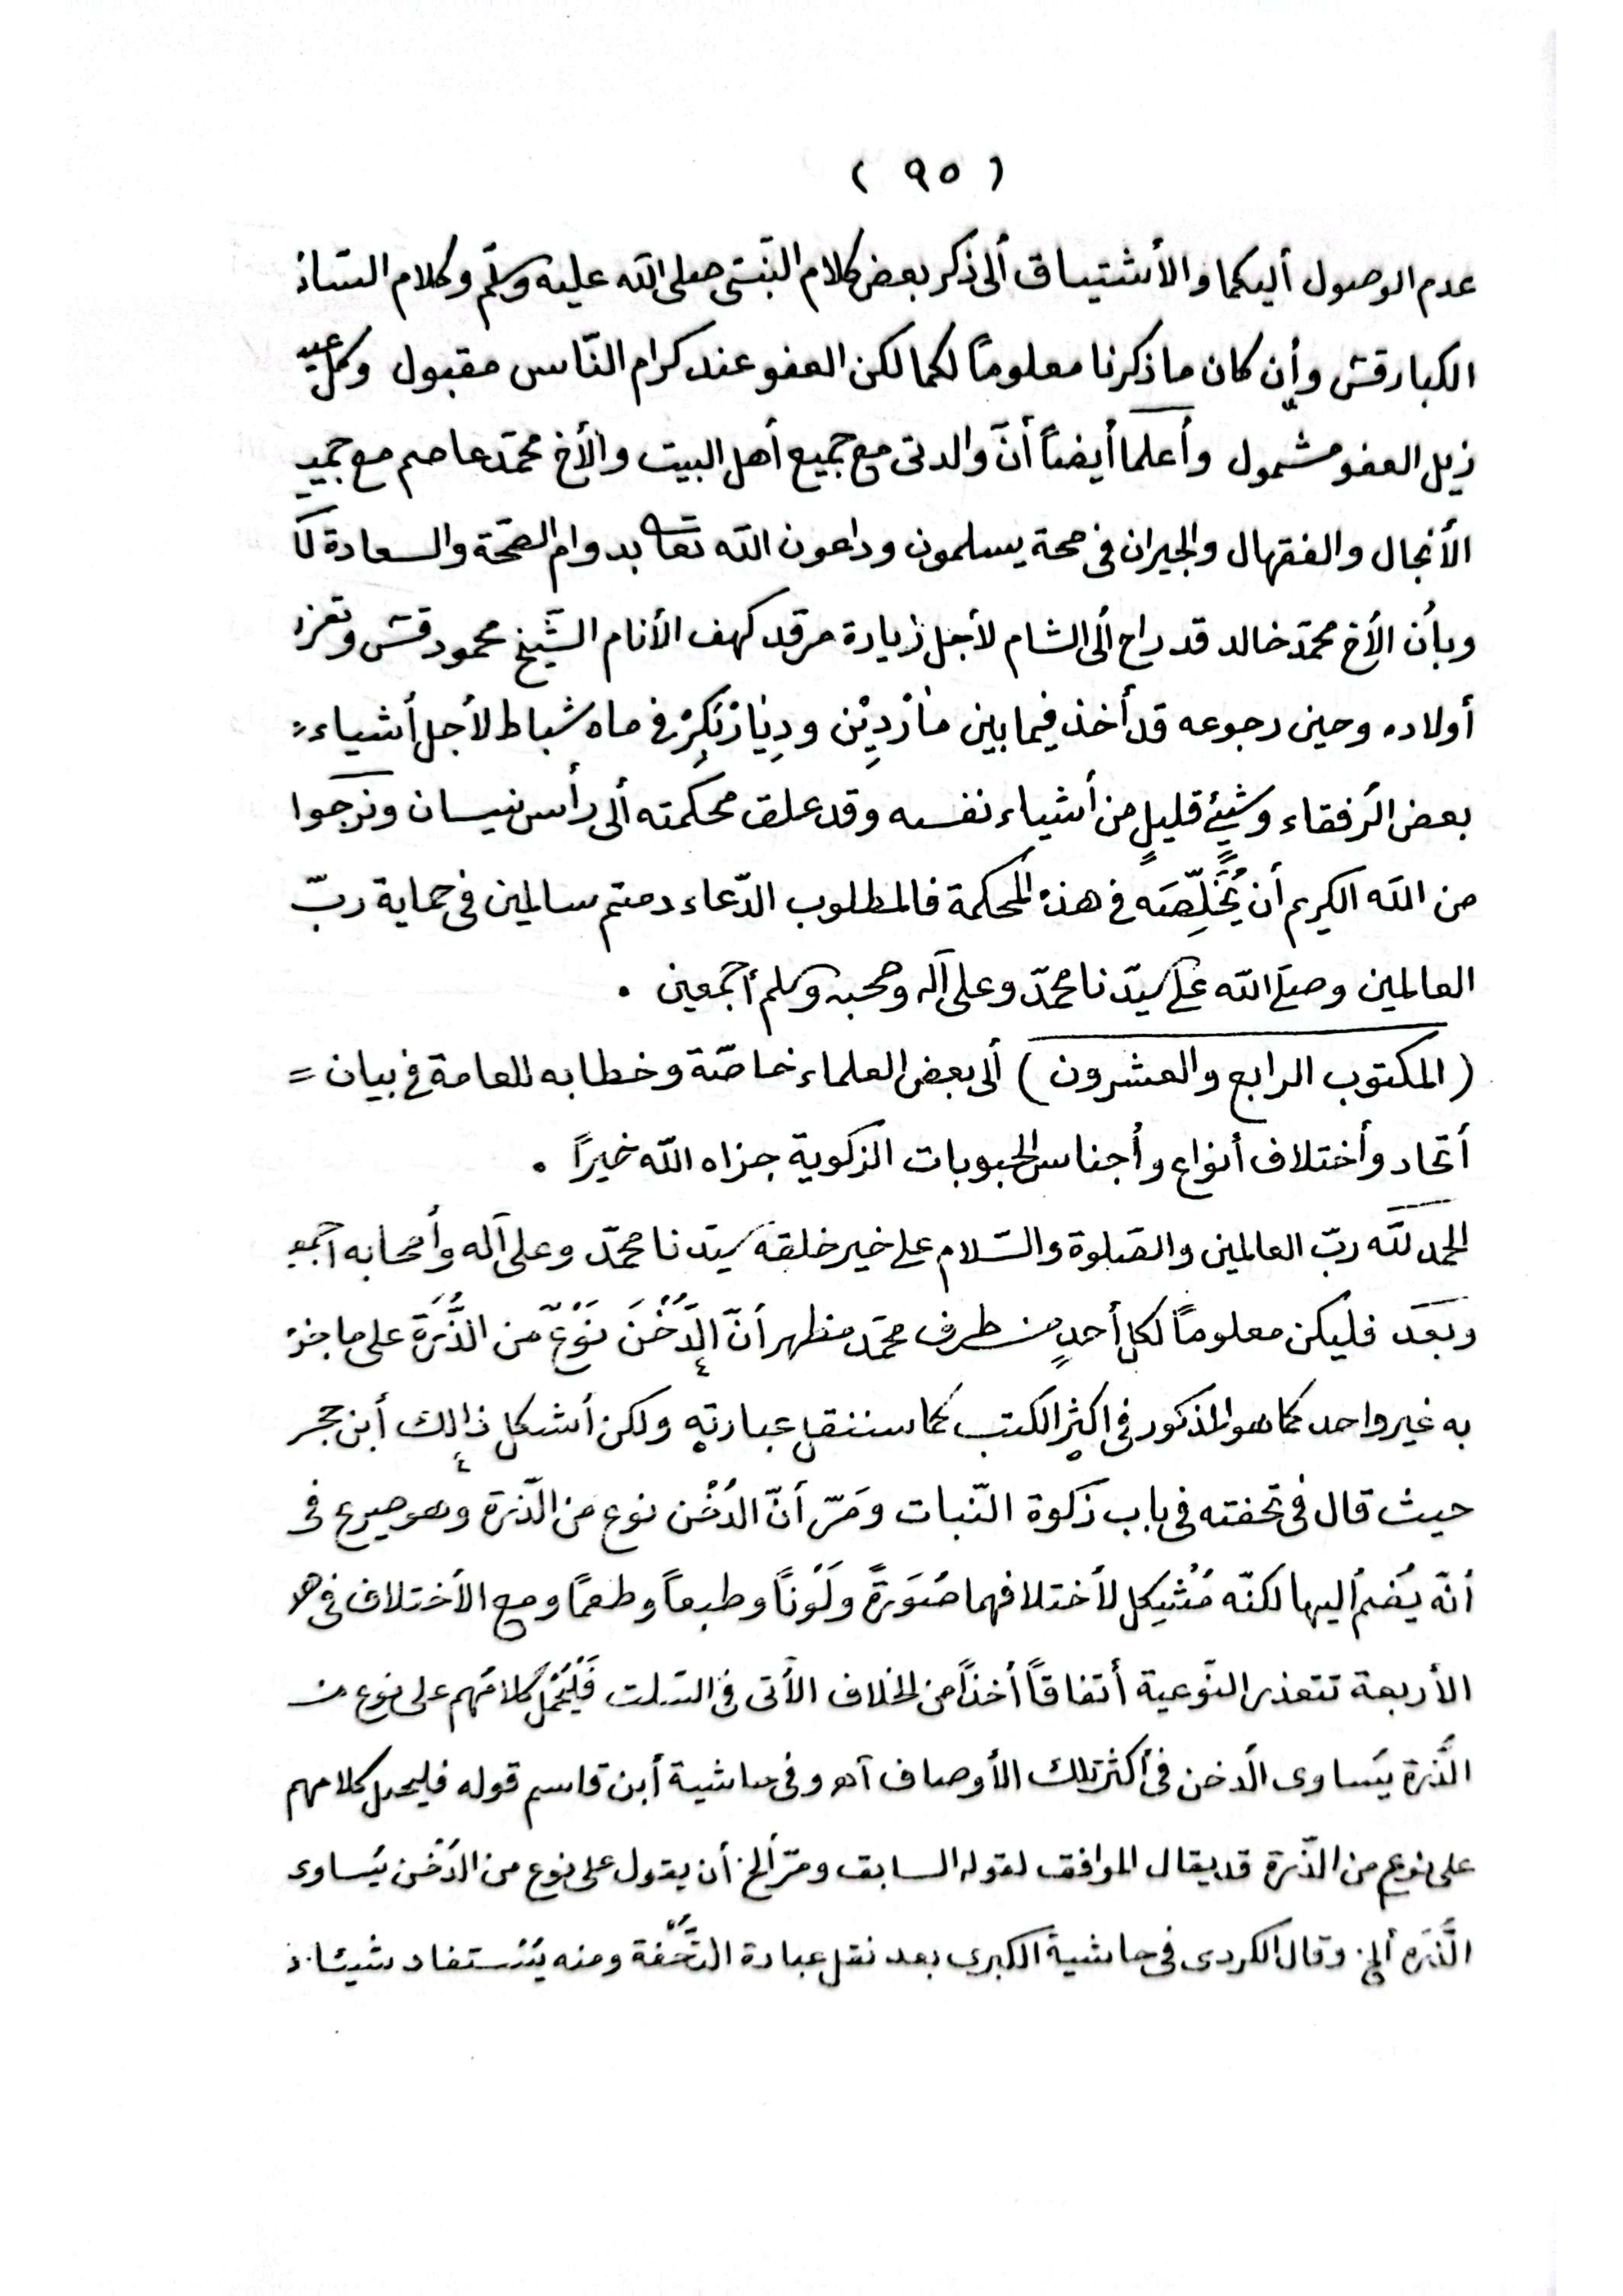 ( ٩٥ )
عدم الوصول أليكما والأشتياق ألى ذكر بعض كلام النّبىّ صلى الله عليه وسلّم وكلام السّاد
الكبار قتس وأن كان ما ذكرنا معلوماً لكما لكن العفو عند كرام النّاس مقبول وكل عيب
ذيل العفو مشمول وأعلما أيضاً أنّ والدتى مع جميع أهل البيت والأخ محمّد عاصم مع جميع
الأنجال والفقهال والجيران فى صحة يسلمون وداعون الله تعا بدوام الصّحّة والسعادة لكما
وبأن الأخ محمّد خالد قد راح ألى الشام لأجل زيارة مرقد كهف الأنام الشّيخ محمود قتس وتعزية
أولاده وحين رجوعه قد أخذ فيما بين مَارْدِيْن ودِيَارْبَكِرْ فى ماه شباط لأجل أشياء
بعض الرّفقاء وشيئٍ قليلٍ من أشياء نفسه وقد علق محكمته ألى رأس نيسان ونرجوا
من الله الكريم أن يُخَلِّصَه فى هذه المحكمة فالمطلوب الدّعاء دمتم سالمين فى حماية ربّ
العالمين وصلى الله على سيّدنا محمّد وعلى آله وصحبه وسلم أجمعين .
( المكتوب الرابع والعشرون ) ألى بعض العلماء خاصّة وخطابه للعامة فى بيان =
أتحاد وأختلاف أنواع وأجناس الحبوبات الزكوية جزاه الله خيراً .
الحمد لله ربّ العالمين والصّلوة والسّلام على خير خلقه سيّدنا محمّد وعلى آله وأصحابه اجمع
وبعد فليكن معلوماً لكل أحدٍ من طرف محمّد مظهر أنّ الدُّخْنَ نَوْعٌ من الذُّرَة على ما جزم
به غير واحد كما هو المذكور فى اكثر الكتب كما سننقل عبارته ولكن أشكل ذالك أبن حجر
حيث قال فى تحفته فى باب زكوة النّبات ومَرّ أنّ الدُخْن نوع من الذّرة وهو صريح فى
أنّه يُضم أليها لكنّه مُشْكِل لأختلافهما صُورَةً ولَوْناً وطبعاً وطعمًا ومع الأختلاف فى هذه
الأربعة تتعذر النّوعية أتفاقاً أخذاً من الخلاف الأتى فى السّلت فَلْيُحْمَلْ كلامُهم على نوع من
الذّرة يُساوى الدّخن فى أكثر تلك الأوصاف آه وفى حاشية أبن قاسم قوله فليحمل كلامهم
على نوع من الذّرة قد يقال الموافق لقوله السابق ومرّ ألخ أن يقول على نوع من الدُخْن يُساوى
الذَّرَه ألخ وقال الكردى فى حاشية الكبرى بعد نقل عبارة التُّحْفة ومنه يُستفاد شيئان